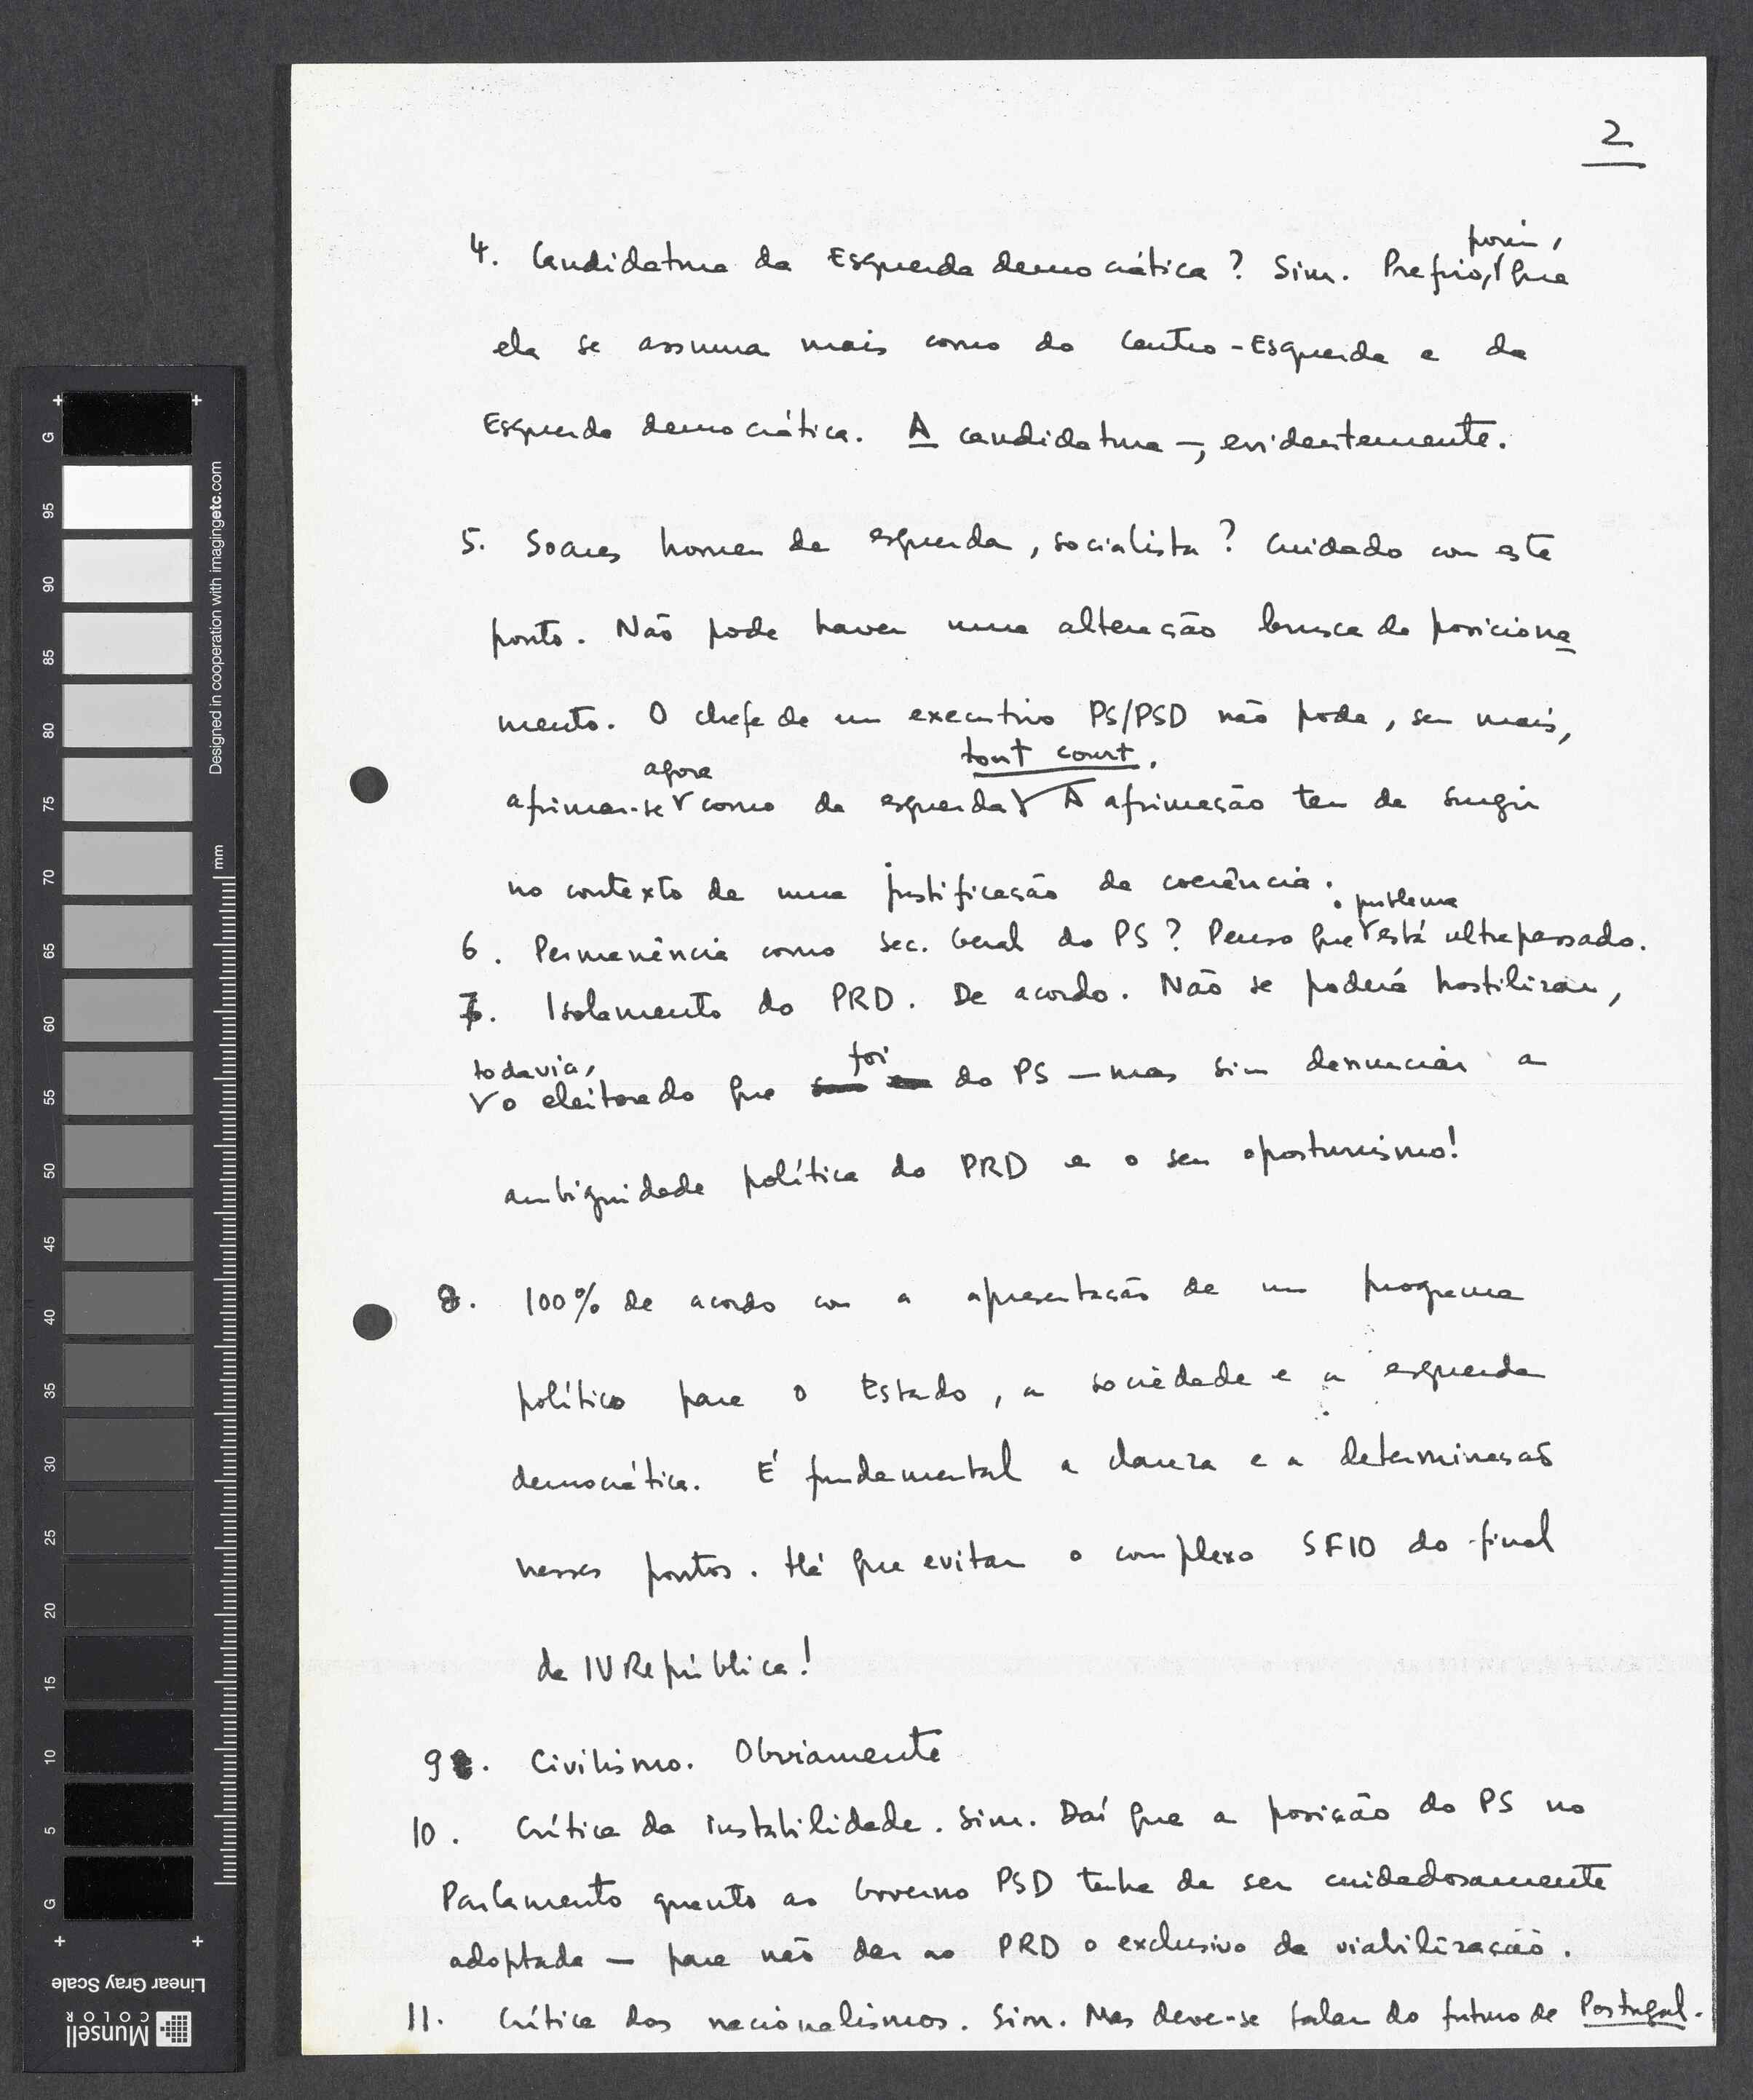 2
4. Candidatura da Esquerda democrática? Sim. Prefiro, porém, que
ela se assuma mais como do Centro-Esquerda e da
Esquerda democrática. A candidatura —, evidentemente.
5. Soares homem de esquerda, socialista? Cuidado com este
ponto. Não pode haver uma alteração brusca de posiciona
mento. O chefe de um executivo PS/PSD não pode, sem mais,
afirmar-se agora como de esquerda tout court. A afirmação tem de surgir
no contexto de uma justificação de coerência.
6. Permanência como Sec. Geral do PS? Penso que o problema está ultrapassado.
7. Isolamento do PRD. De acordo. Não se poderá hostilizar,
todavia, o eleitorado que foi do PS — mas sim denunciar a
ambiguidade política do PRD e o seu oportunismo!
8. 100% de acordo com a apresentação de um programa
político para o Estado, a sociedade e a esquerda
democrática. É fundamental a clareza e a determinação
nesses pontos. Há que evitar o complexo SFIO do final
da IV República!
9. Civilismo. Obviamente
10. Crítica da instabilidade. Sim. Daí que a posição do PS no
Parlamento quanto ao Governo PSD tenha de ser cuidadosamente
adoptada — para não dar ao PRD o exclusivo da viabilização.
11. Crítica dos nacionalismos. Sim. Mas deve-se falar do futuro de Portugal.
G
95
90
85
80
75
70
65
60
55
50
45
40
35
30
25
20
15
10
5
G
Designed in cooperation with imagingetc.com
mm
Linear Gray Scale
Munsell
COLOR